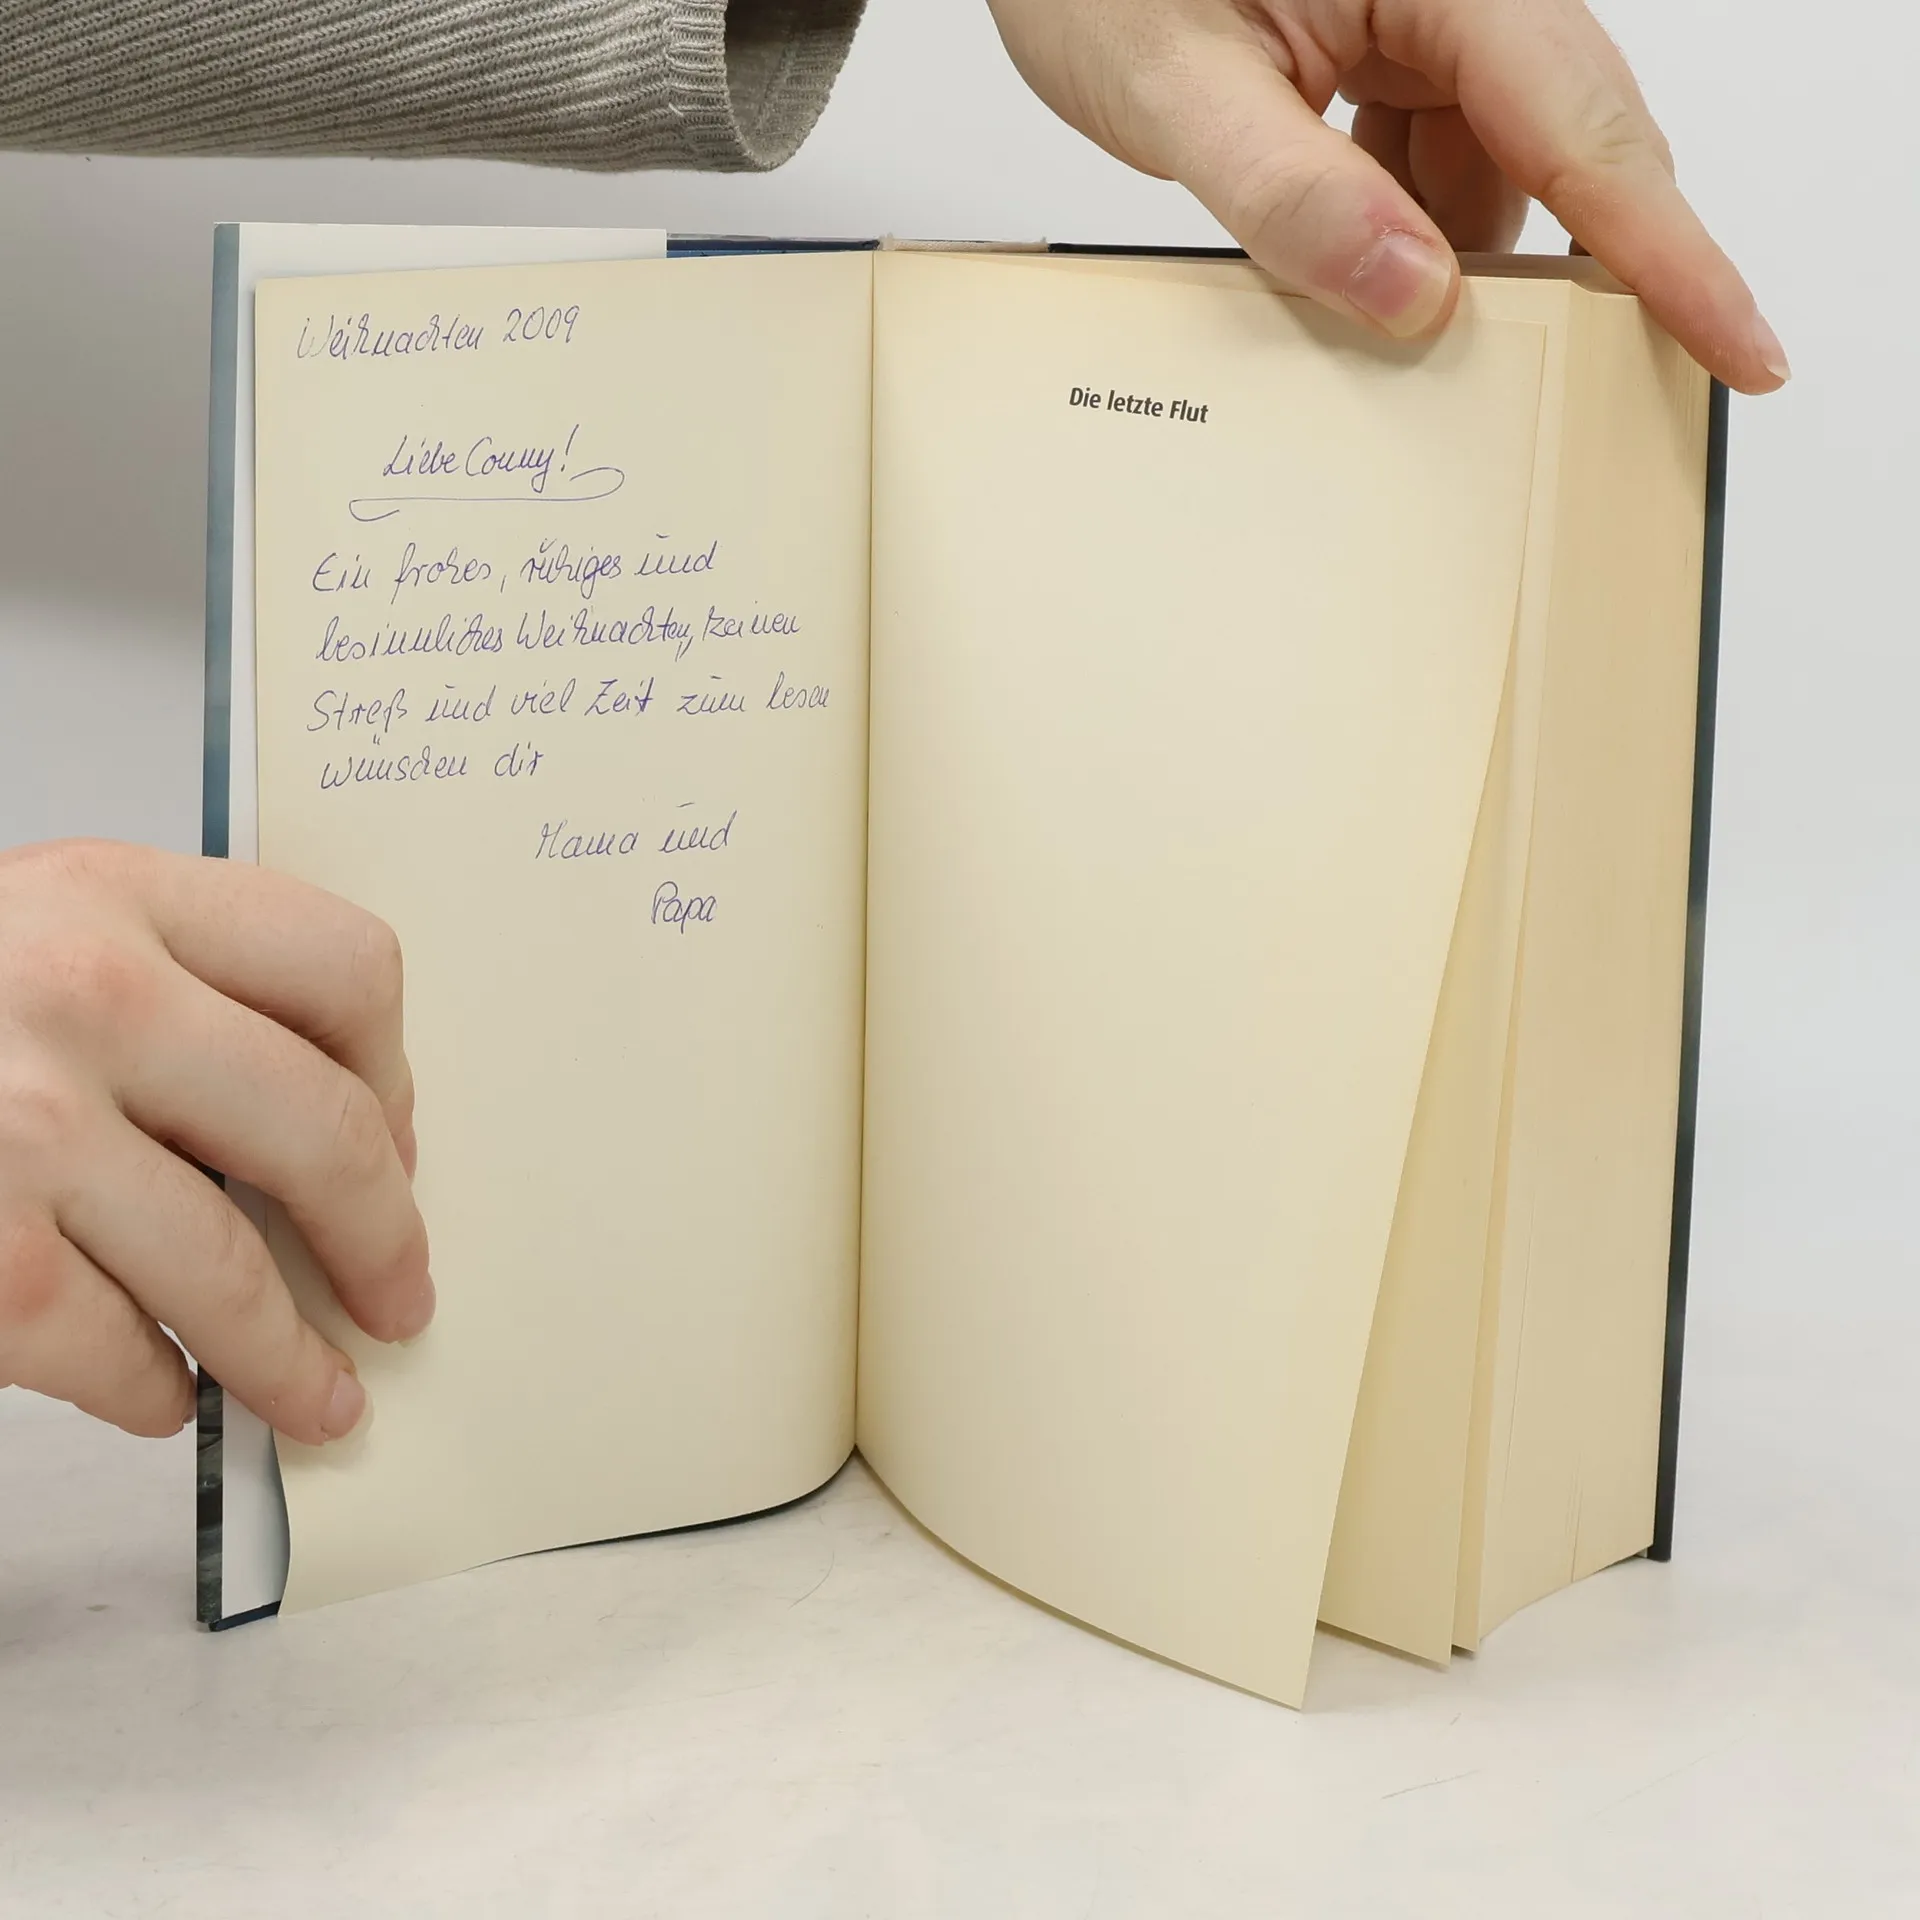 Weihnachten 2009
Liebe Conny!
Ein frohes, ruhiges und
besinnliches Weihnachten, keinen
Streß und viel Zeit zum lesen
wünschen dir
Mama und
Papa
Die letzte Flut